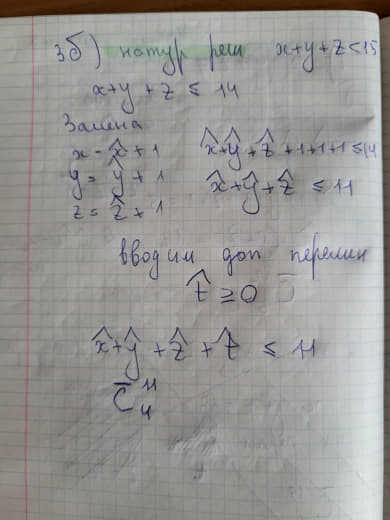 3б) натур реш x+y+z<15
x+y+z ≤ 14
Замена
x = x̂+1 x̂+ŷ+ẑ+1+1+1≤14
y = ŷ+1 x̂+ŷ+ẑ ≤ 11
z = ẑ+1
вводим доп перемен
t̂ ≥ 0
x̂+ŷ+ẑ+t̂ ≤ 11
C̄₄¹¹